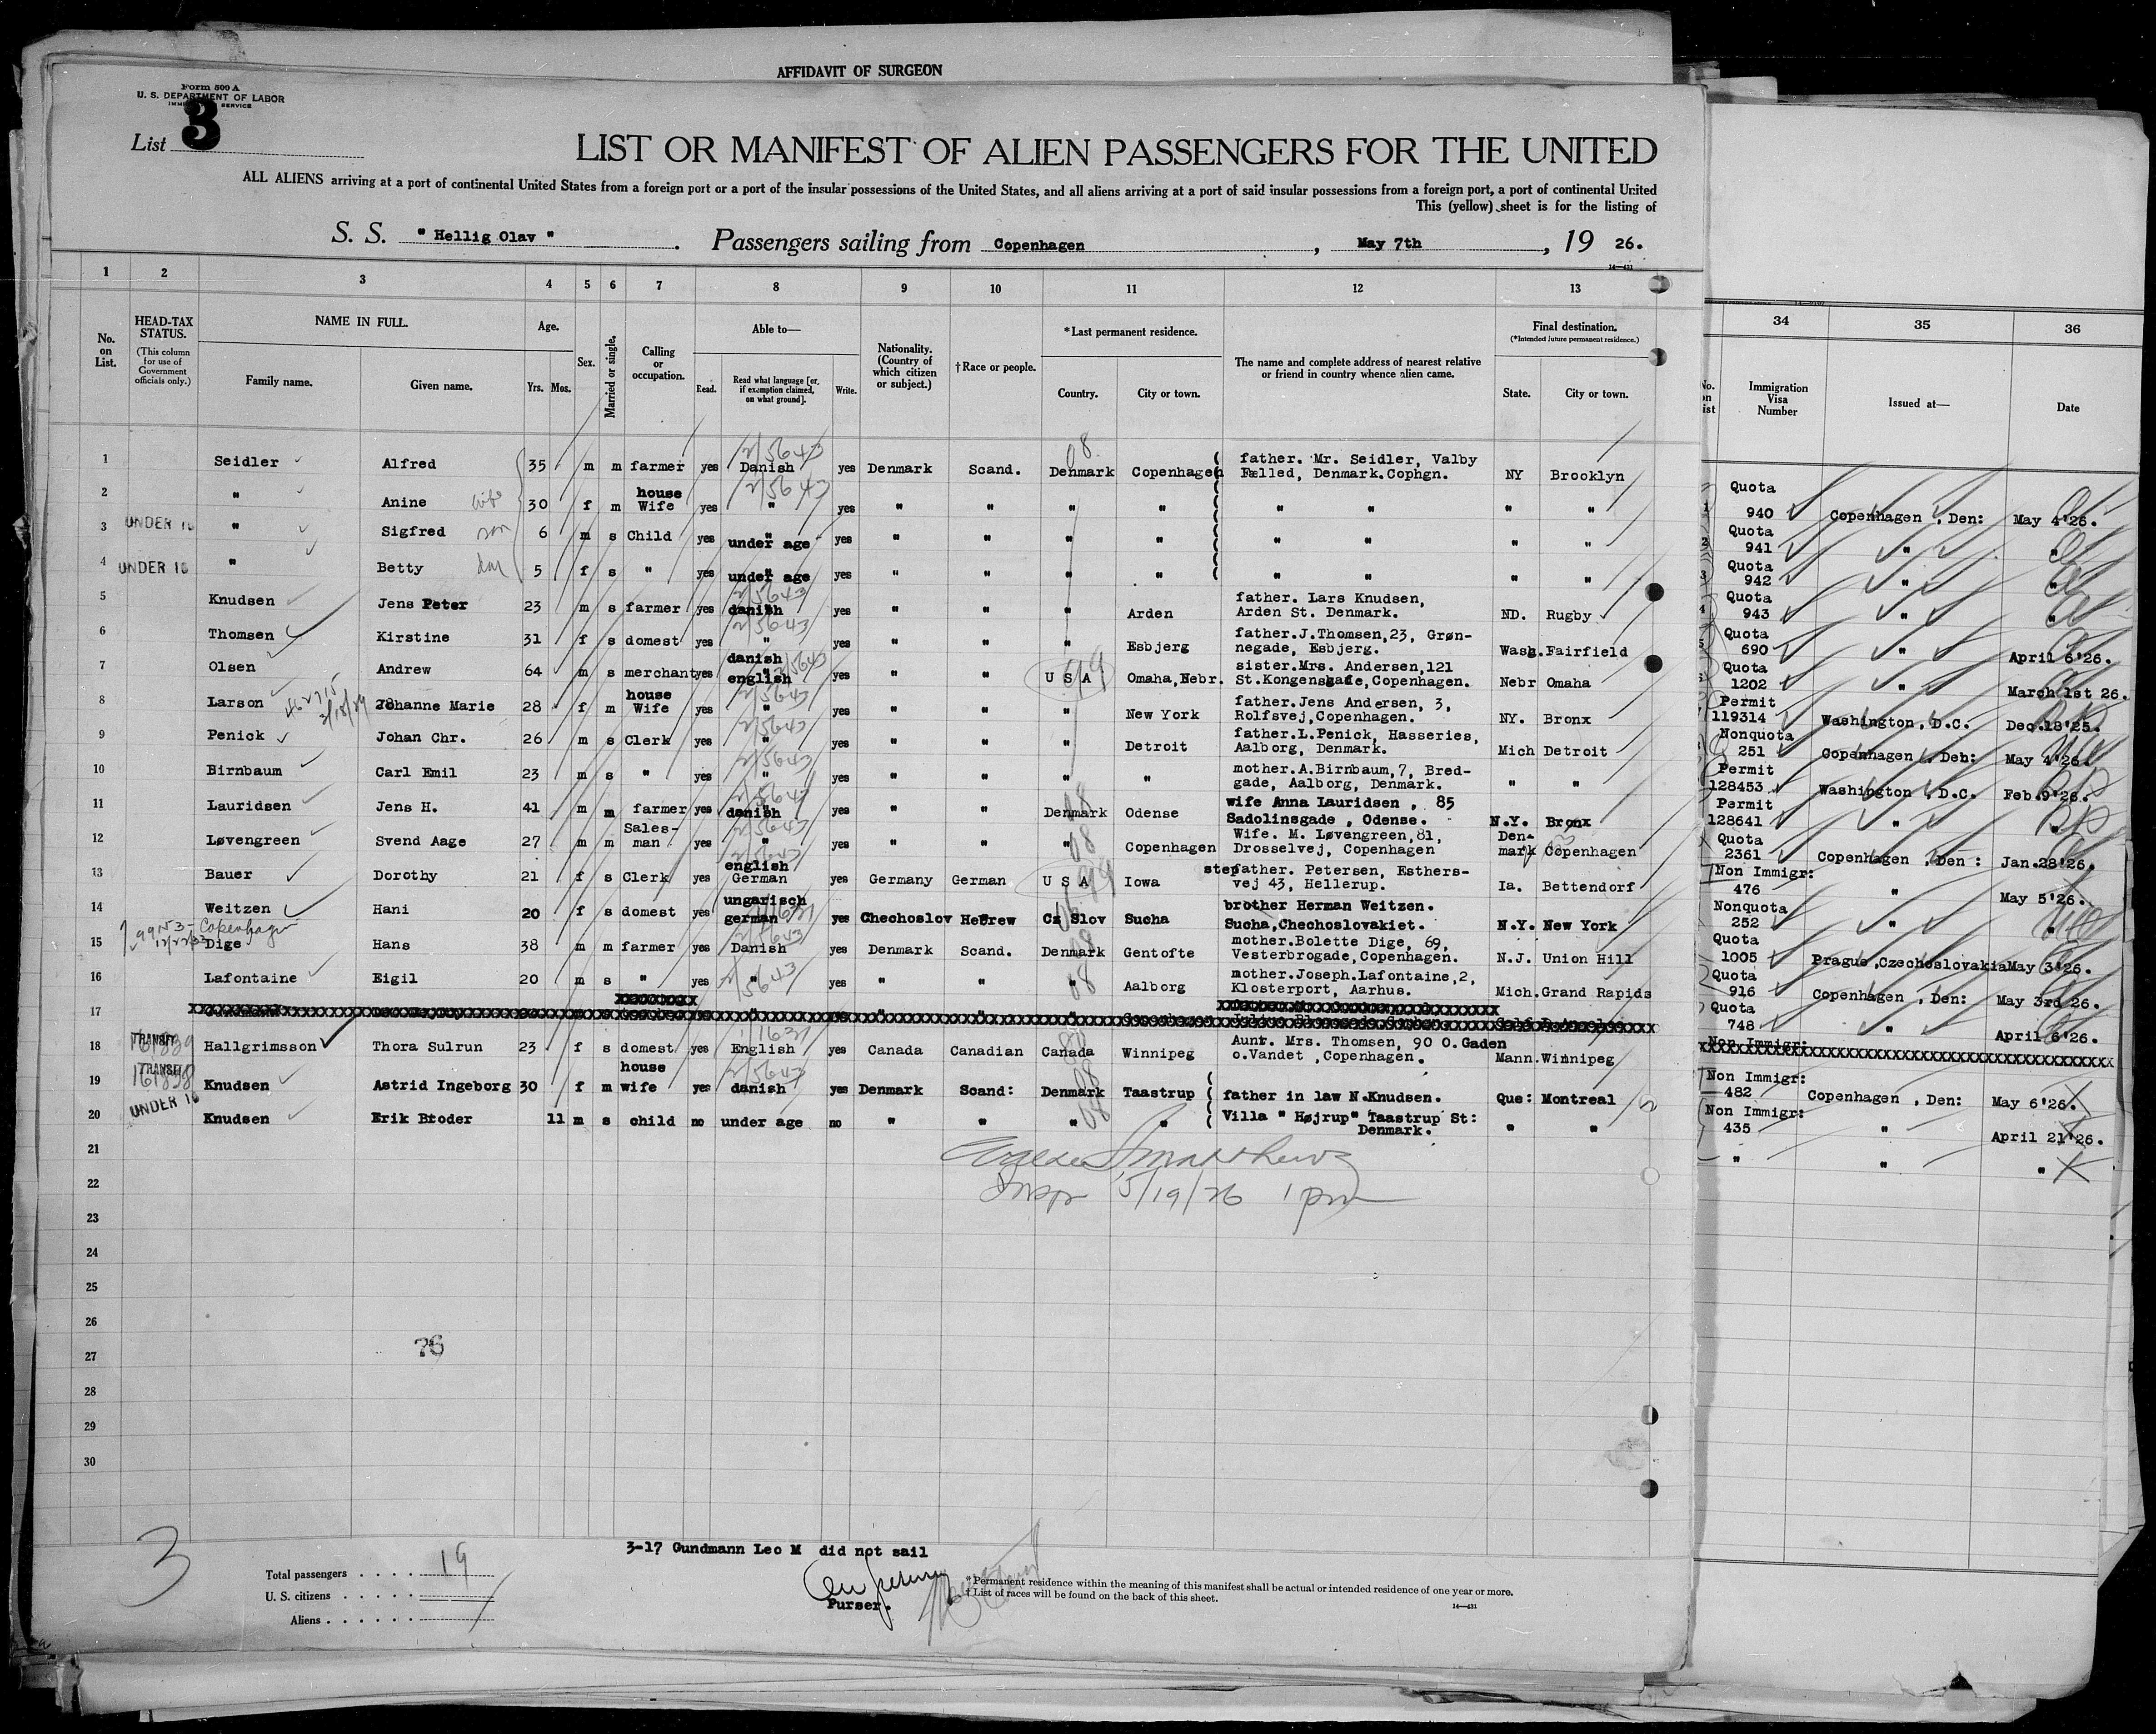 AFFIDAVIT OF SURGEON
Form 500 A
U. S. DEPARTMENT OF LABOR
IMMI SERVICE
List 3
LIST OR MANIFEST OF ALIEN PASSENGERS FOR THE UNITED
ALL ALIENS arriving at a port of continental United States from a foreign port or a port of the insular possessions of the United States, and all aliens arriving at a port of said insular possessions from a foreign port, a port of continental United
This (yellow) sheet is for the listing of
S. S. " Hellig Olav " . Passengers sailing from Copenhagen , May 7th , 19 26.
14—431
1 2 3 4 5 6 7 8 9 10 11 12 13
No. on List.
HEAD-TAX STATUS. (This column for use of Government officials only.)
NAME IN FULL. Family name. Given name.
Age. Yrs. Mos.
Sex.
Married or single.
Calling or occupation.
Able to— Read. Read what language [or, if exemption claimed, on what ground]. Write.
Nationality. (Country of which citizen or subject.)
†Race or people.
*Last permanent residence. Country. City or town.
The name and complete address of nearest relative or friend in country whence alien came.
Final destination. (*Intended future permanent residence.) State. City or town.
1 Seidler Alfred 35 m m farmer yes Danish 2/5643 yes Denmark Scand. 08 Denmark Copenhagen father. Mr. Seidler, Valby Fælled, Denmark.Cophgn. NY Brooklyn
2 " wife Anine 30 f m house Wife yes " 2/5643 yes " " " " " " " "
3 UNDER 16 " Sigfred son 6 m s Child yes " under age yes " " " " " " " "
4 UNDER 16 " Betty dau 5 f s " yes " under age yes " " " " " " " "
5 Knudsen Jens Peter 23 m s farmer yes danish 2/5643 yes " " " Arden father. Lars Knudsen, Arden St. Denmark. ND. Rugby
6 Thomsen Kirstine 31 f s domest yes " 2/5643 yes " " " Esbjerg father.J.Thomsen,23, Grøn-negade, Esbjerg. Wash.Fairfield
7 Olsen Andrew 64 m s merchant yes danish " english 2/5643 yes " " U S A 99 Omaha,Nebr. sister.Mrs. Andersen,121 St.Kongensgade,Copenhagen. Nebr Omaha
8 Larson Johanne Marie 28 f m house Wife yes " 2/5643 yes " " " New York father.Jens Andersen, 3, Rolfsvej,Copenhagen. NY. Bronx
9 Penick Johan Chr. 26 m s Clerk yes " 2/5643 yes " " " Detroit father.L.Penick, Hasseries, Aalborg, Denmark. Mich Detroit
10 Birnbaum Carl Emil 23 m s " yes " 2/5643 yes " " " " mother.A.Birnbaum,7, Bred-gade, Aalborg, Denmark. " "
11 Lauridsen Jens H. 41 m m farmer yes danish 2/5643 yes " " 08 Denmark Odense wife Anna Lauridsen , 85 Sadolinsgade , Odense. N.Y. Bronx
12 Løvengreen Svend Aage 27 m m Sales-man yes " 2/5643 yes " " " 08 Copenhagen Wife. M. Løvengreen,81, Drosselvej, Copenhagen Den-mark Copenhagen
13 Bauer Dorothy 21 f s Clerk yes english German 2/5643 yes Germany German U S A 99 Iowa stepfather. Petersen, Esthers-vej 43, Hellerup. Ia. Bettendorf
14 Weitzen Hani 20 f s domest yes ungarisch german yes Chechoslov Hebrew Cz Slov Sucha brother Herman Weitzen. Sucha,Chechoslovakiet. N.Y. New York
15 Dige Hans 38 m m farmer yes Danish 2/5643 yes Denmark Scand. 08 Denmark Gentofte mother.Bolette Dige, 69, Vesterbrogade,Copenhagen. N.J. Union Hill
16 Lafontaine Eigil 20 m s " yes " 2/5643 yes " " " 08 Aalborg mother.Joseph.Lafontaine,2, Klosterport, Aarhus. Mich.Grand Rapids
17
18 TRANSIT 161839 Hallgrimsson Thora Sulrun 23 f s domest yes English 1/1631 yes Canada Canadian Canada Winnipeg Aunt. Mrs. Thomsen, 90 O.Gaden o.Vandet ,Copenhagen. Mann.Winnipeg
19 TRANSIT 161838 Knudsen Astrid Ingeborg 30 f m house wife yes danish 2/5643 yes Denmark Scand: 08 Denmark Taastrup father in law N.Knudsen. Que: Montreal
20 UNDER 16 Knudsen Erik Broder 11 m s child no under age no " " " 08 " Villa " Højrup" Taastrup St: Denmark. " "
21
22 Insp 5/19/26 1 pm
23
24
25
26
27 26
28
29
30
3
3-17 Gundmann Leo M did not sail
Total passengers . . . . 19
U. S. citizens . . . . .
Aliens . . . . . .
Purser.
*Permanent residence within the meaning of this manifest shall be actual or intended residence of one year or more.
† List of races will be found on the back of this sheet.
14—431
34 35 36
No. on List
Immigration Visa Number
Issued at—
Date
1 Quota 940 Copenhagen , Den: May 4'26.
2 Quota 941 " "
3 Quota 942 " "
4 Quota 943 " "
5 Quota 690 " April 6'26.
Quota 1202 " March 1st 26.
Permit 119314 Washington, D.C. Dec.18'25.
Nonquota 251 Copenhagen , Deh: May 4'26.
Permit 128453 Washington , D.C. Feb.9'26.
Permit 128641 " "
Quota 2361 Copenhagen , Den : Jan.28'26.
Non Immigr: 476 " May 5'26.
Nonquota 252 " "
Quota 1005 Prague,Czechoslovakia May 3'26.
Quota 916 Copenhagen , Den: May 3rd 26.
Quota 748 " April 6'26.
Non Immigr:
Non Immigr: 482 Copenhagen , Den: May 6'26.
Non Immigr: 435 " April 21'26.
" " "